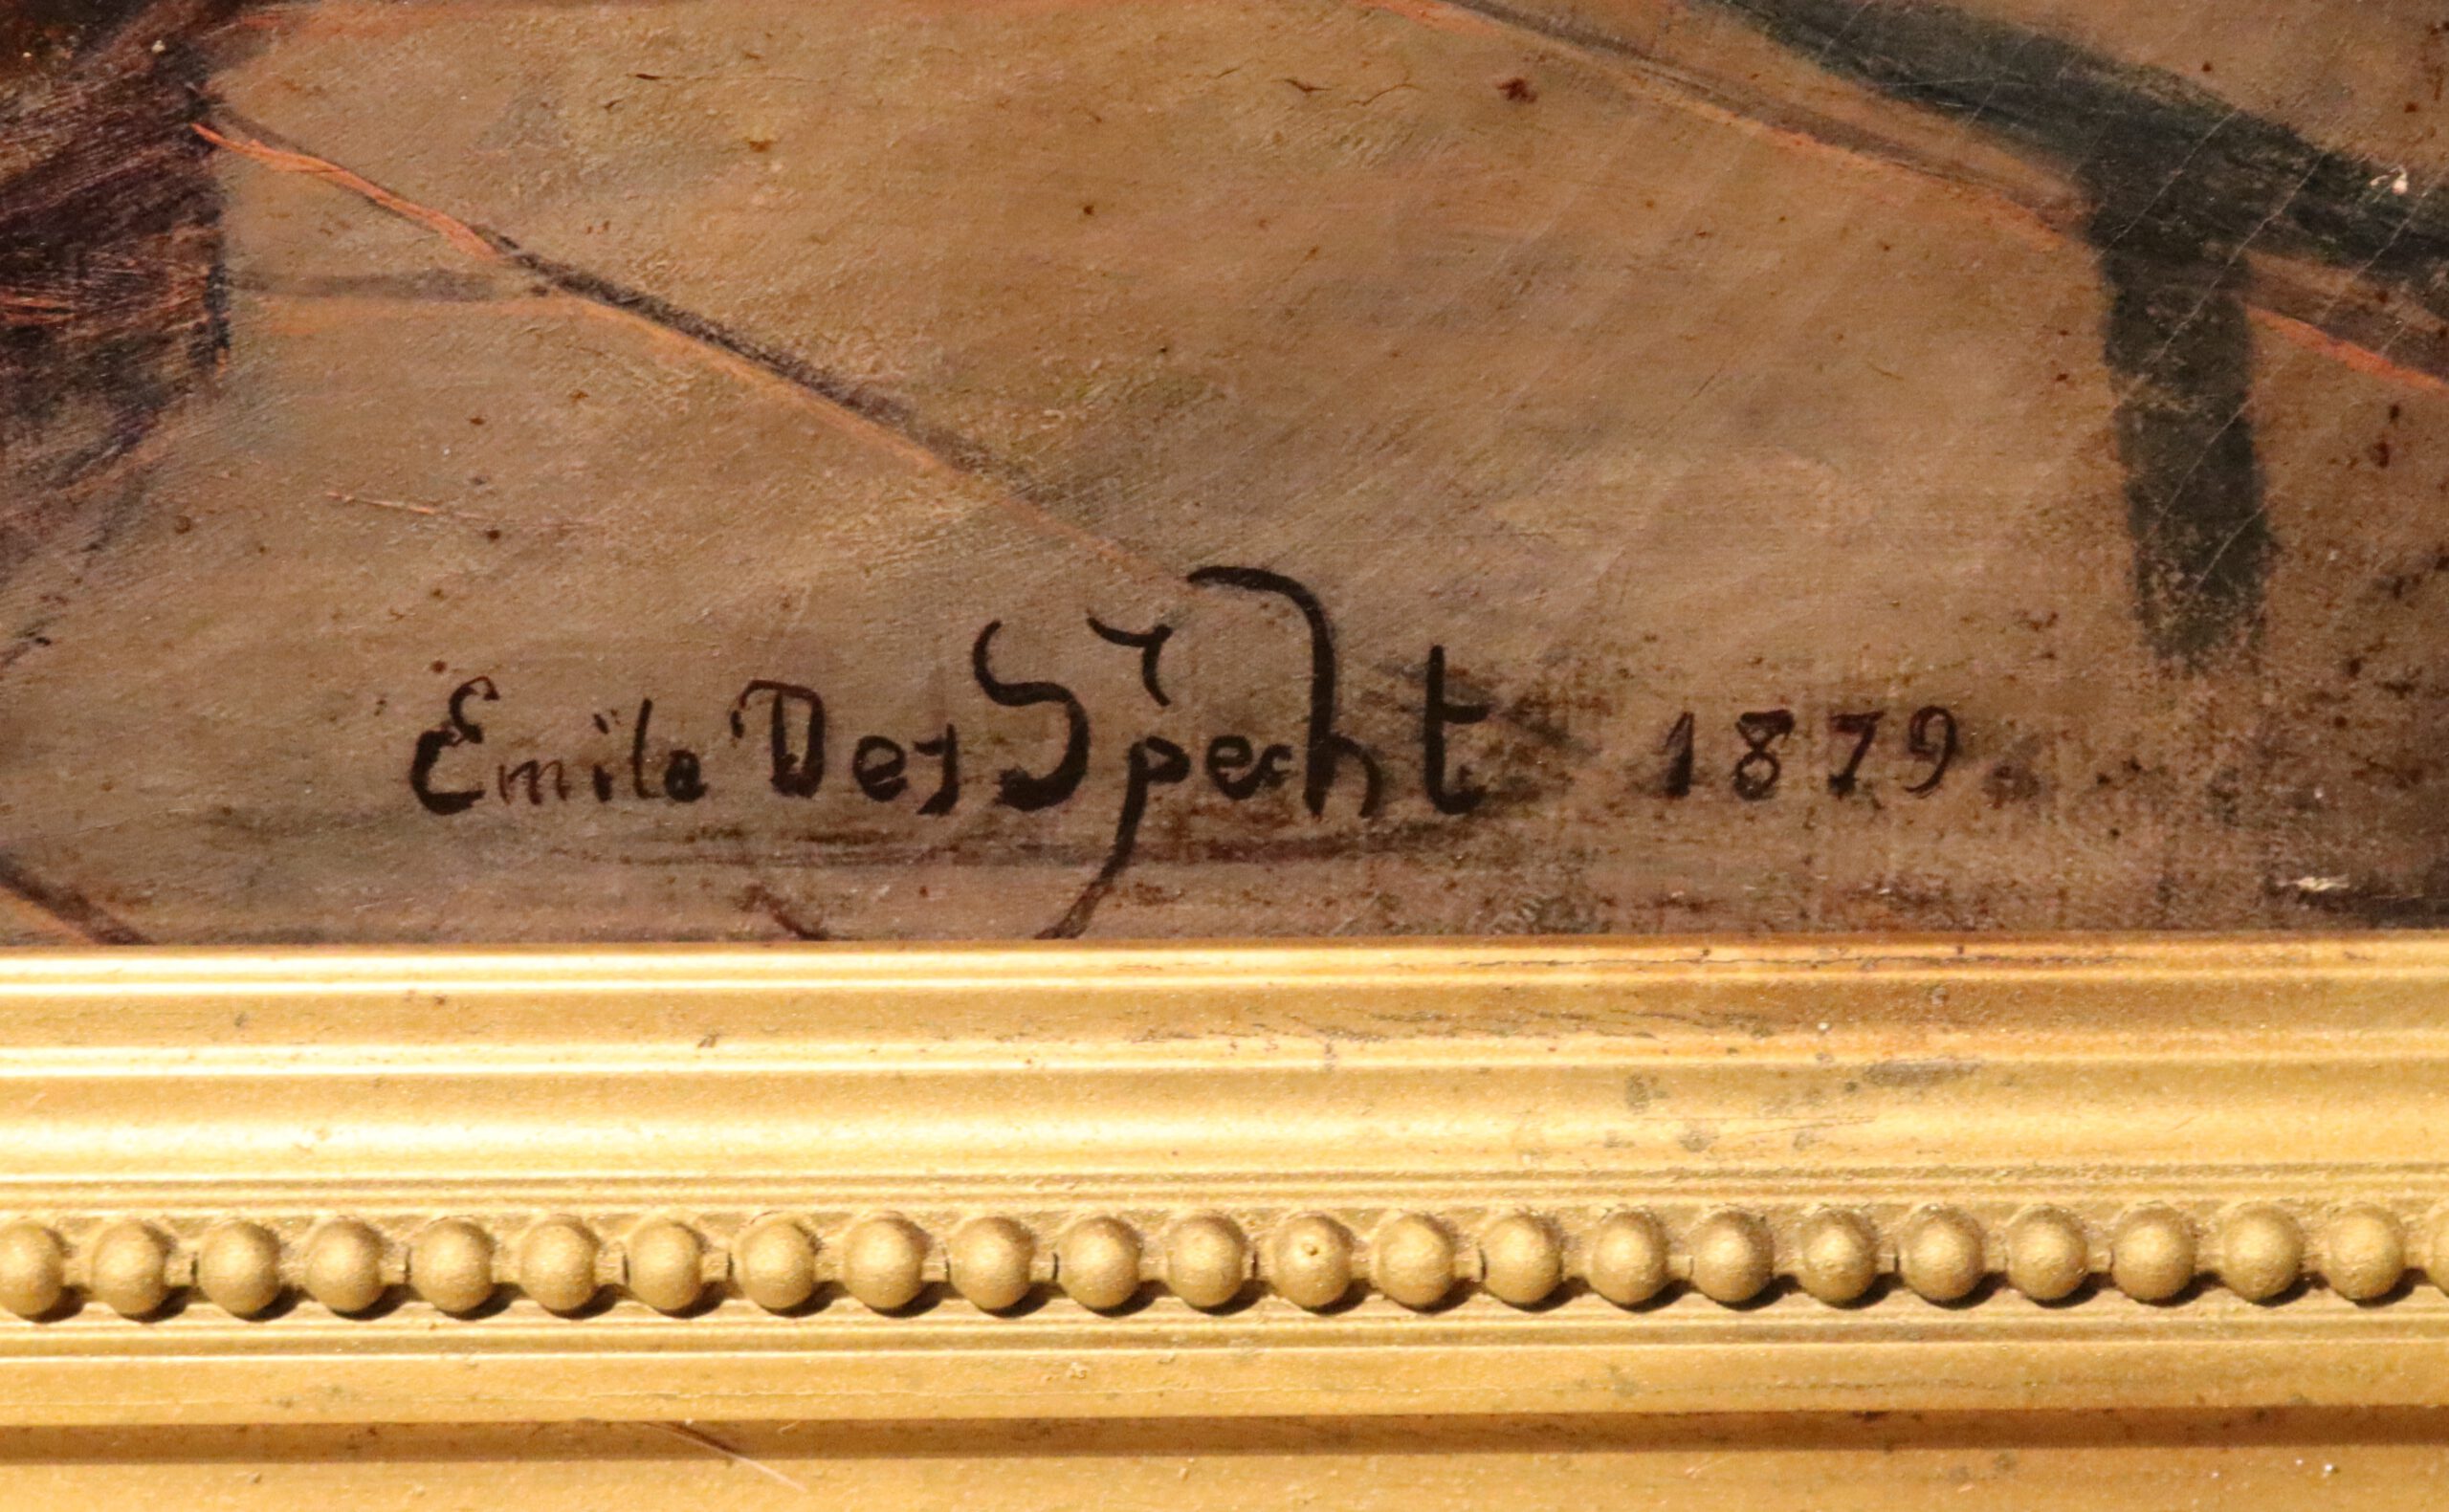 Emile Des Specht 1879